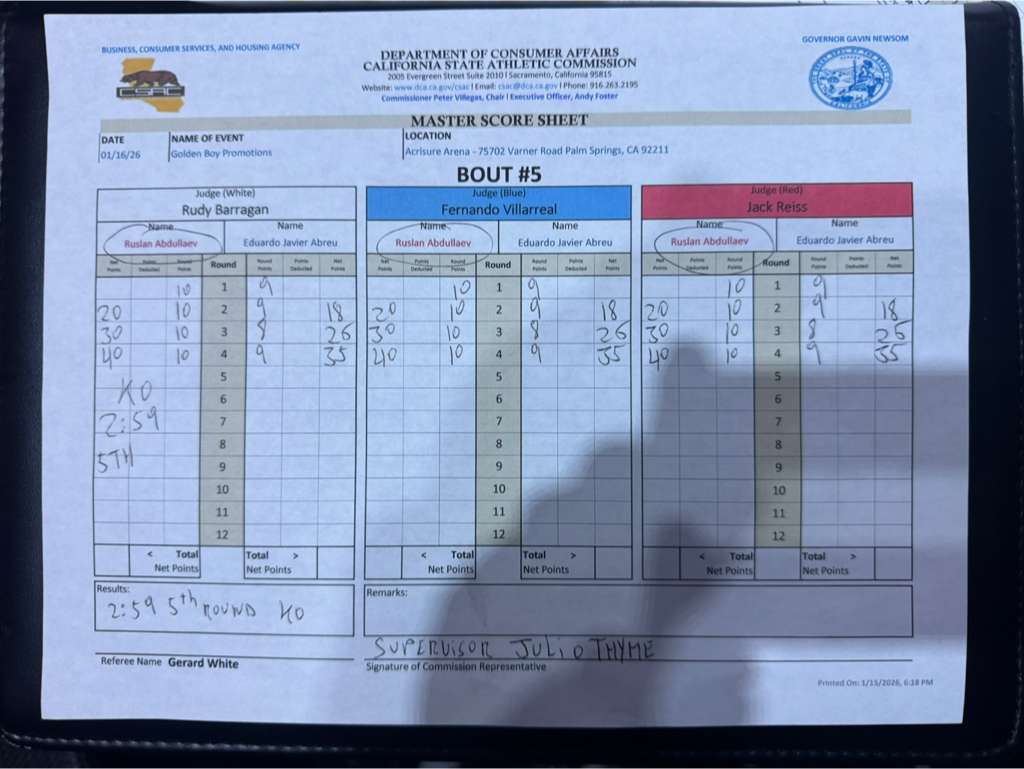 BUSINESS, CONSUMER SERVICES, AND HOUSING AGENCY
GOVERNOR GAVIN NEWSOM
CSAC
DEPARTMENT OF CONSUMER AFFAIRS
CALIFORNIA STATE ATHLETIC COMMISSION
2005 Evergreen Street Suite 2010 | Sacramento, California 95815
Website: www.dca.ca.gov/csac | Email: csac@dca.ca.gov | Phone: 916.263.2195
Commissioner Peter Villegas, Chair | Executive Officer, Andy Foster
MASTER SCORE SHEET
DATE NAME OF EVENT LOCATION
01/16/26 Golden Boy Promotions Acrisure Arena - 75702 Varner Road Palm Springs, CA 92211
BOUT #5
Judge (White) Judge (Blue) Judge (Red)
Rudy Barragan Fernando Villarreal Jack Reiss
Name Name Name Name Name Name
Ruslan Abdullaev Eduardo Javier Abreu Ruslan Abdullaev Eduardo Javier Abreu Ruslan Abdullaev Eduardo Javier Abreu
Net Points Points Deducted Round Points Round Round Points Points Deducted Net Points Net Points Points Deducted Round Points Round Round Points Points Deducted Net Points Net Points Points Deducted Round Points Round Round Points Points Deducted Net Points
10 1 9 10 1 9 10 1 9
20 10 2 9 18 20 10 2 9 18 20 10 2 9 18
30 10 3 8 26 30 10 3 8 26 30 10 3 8 26
40 10 4 9 35 40 10 4 9 35 40 10 4 9 35
5 5 5
KO 6 6 6
2:59 7 7 7
8 8 8
5TH 9 9 9
10 10 10
11 11 11
12 12 12
< Total Total > < Total Total > < Total Total >
Net Points Net Points Net Points Net Points Net Points Net Points
Results: Remarks:
2:59 5th ROUND KO
SUPERVISOR JULIO THYME
Referee Name Gerard White Signature of Commission Representative
Printed On: 1/15/2026, 6:18 PM